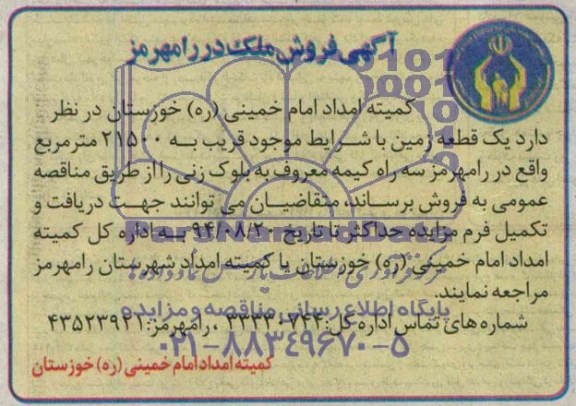 آگهی فروش ملک در رامهرمز
کمیته امداد امام خمینی (ره) خوزستان در نظر
دارد یک قطعه زمین با شرایط موجود قریب به ۲۱۵۰۰ مترمربع
واقع در رامهرمز سه راه کیمه معروف به بلوک زنی را از طریق مناقصه
عمومی به فروش برساند، متقاضیان می توانند جهت دریافت و
تکمیل فرم مزایده حداکثر تا تاریخ ۹۴/۰۸/۲۰ به اداره کل کمیته
امداد امام خمینی (ره) خوزستان یا کمیته امداد شهرستان رامهرمز
مراجعه نمایند.
شماره های تماس اداره کل: ۳۳۳۴۰۷۴۳ ، رامهرمز: ۴۳۵۲۳۹۲۱
کمیته امداد امام خمینی (ره) خوزستان
ParsNamadData
پایگاه اطلاع رسانی مناقصه و مزایده
۰۲۱-۸۸۳۴۹۶۷۰-۵